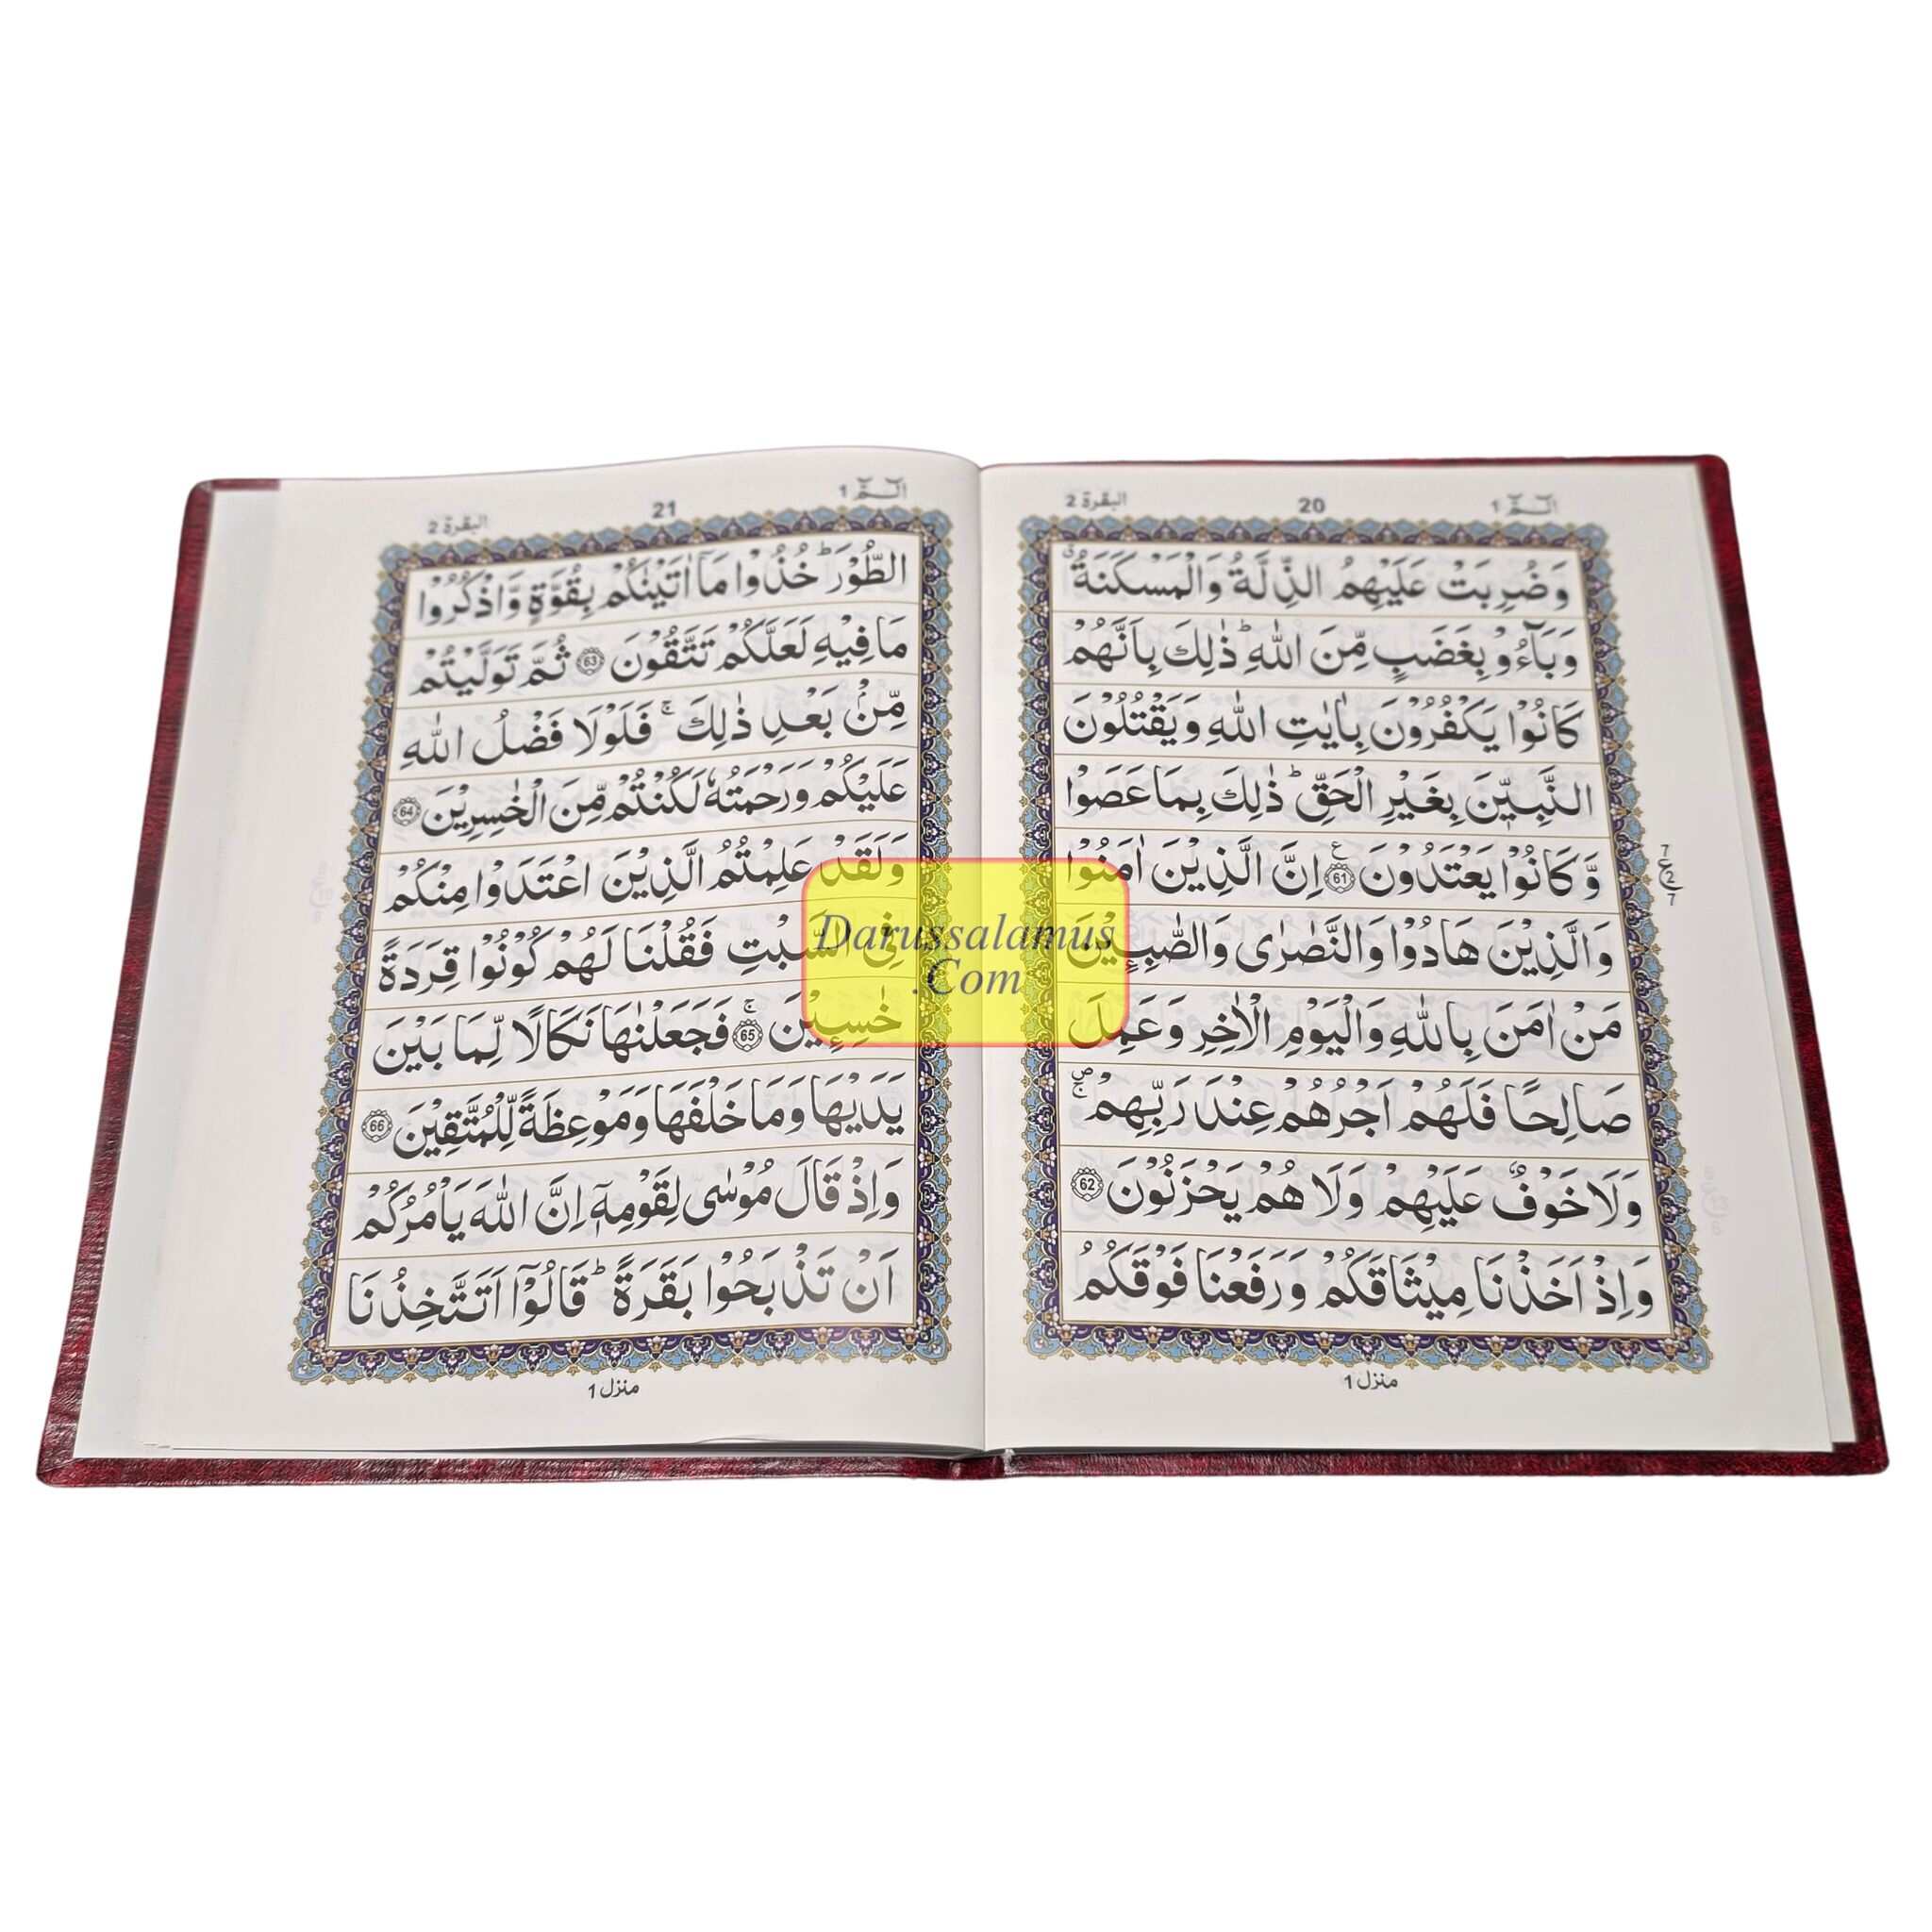 الٓـمّٓ 1
20
البقرة 2
وَضُرِبَتْ عَلَيْهِمُ الذِّلَّةُ وَالْمَسْكَنَةُ ۗ
وَبَآءُوْ بِغَضَبٍ مِّنَ اللّٰهِ ؕ ذٰلِكَ بِاَنَّهُمْ
كَانُوْا يَكْفُرُوْنَ بِاٰيٰتِ اللّٰهِ وَيَقْتُلُوْنَ
النَّبِيّٖنَ بِغَيْرِ الْحَقِّ ؕ ذٰلِكَ بِمَا عَصَوْا
وَّكَانُوْا يَعْتَدُوْنَ 61 ع اِنَّ الَّذِيْنَ اٰمَنُوْا
7
ع
2
7
وَالَّذِيْنَ هَادُوْا وَالنَّصٰرٰى وَالصّٰبِـِٕيْنَ
مَنْ اٰمَنَ بِاللّٰهِ وَالْيَوْمِ الْاٰخِرِ وَعَمِلَ
صَالِحًا فَلَهُمْ اَجْرُهُمْ عِنْدَ رَبِّهِمْ ۖۚ
وَلَا خَوْفٌ عَلَيْهِمْ وَلَا هُمْ يَحْزَنُوْنَ 62
وَاِذْ اَخَذْنَا مِيْثَاقَكُمْ وَرَفَعْنَا فَوْقَكُمُ
منزل 1
الٓـمّٓ 1
21
البقرة 2
الطُّوْرَ ؕ خُذُوْا مَآ اٰتَيْنٰكُمْ بِقُوَّةٍ وَّاذْكُرُوْا
مَا فِيْهِ لَعَلَّكُمْ تَتَّقُوْنَ 63 ثُمَّ تَوَلَّيْتُمْ
مِّنْۢ بَعْدِ ذٰلِكَ ۚ فَلَوْلَا فَضْلُ اللّٰهِ
عَلَيْكُمْ وَرَحْمَتُهٗ لَكُنْتُمْ مِّنَ الْخٰسِرِيْنَ 64
وَلَقَدْ عَلِمْتُمُ الَّذِيْنَ اعْتَدَوْا مِنْكُمْ
فِى السَّبْتِ فَقُلْنَا لَهُمْ كُوْنُوْا قِرَدَةً
خٰسِـِٕيْنَ ۚ 65 فَجَعَلْنٰهَا نَكَالًا لِّمَا بَيْنَ
يَدَيْهَا وَمَا خَلْفَهَا وَمَوْعِظَةً لِّلْمُتَّقِيْنَ 66
وَاِذْ قَالَ مُوْسٰى لِقَوْمِهٖٓ اِنَّ اللّٰهَ يَاْمُرُكُمْ
اَنْ تَذْبَحُوْا بَقَرَةً ؕ قَالُوْٓا اَتَتَّخِذُنَا
منزل 1
Darussalamus
.Com